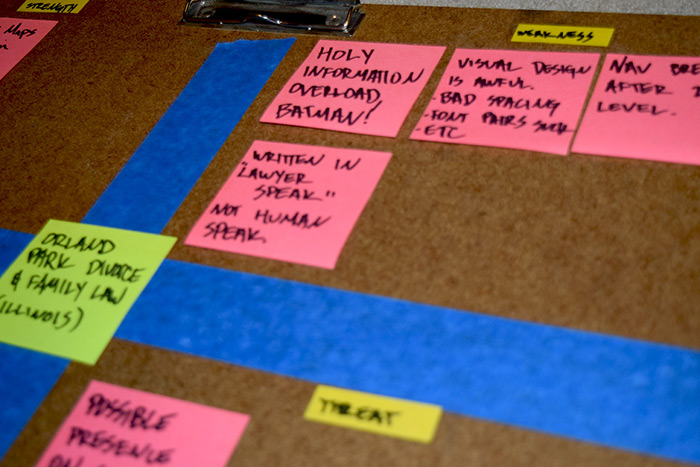 STRENGTH
MAPS
WEAKNESS
HOLY
INFORMATION
OVERLOAD,
BATMAN!
VISUAL DESIGN
IS AWFUL.
-BAD SPACING
-FONT PAIRS SUCK
-ETC
NAV BRE
AFTER
LEVEL.
WRITTEN IN
"LAWYER
SPEAK"
NOT HUMAN
SPEAK.
ORLAND
PARK DIVORCE
& FAMILY LAW
(ILLINOIS)
THREAT
POSSIBLE
PRESENCE
ON